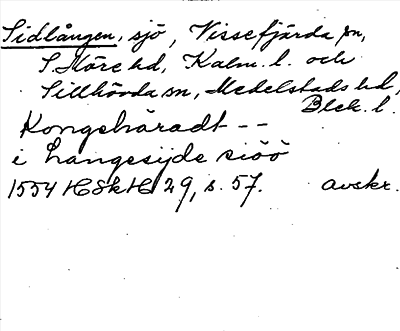 Sidlången, sjö, Vissefjärda sn,
S. Möre hd, Kalm. l. och
Sillhövda sn, Medelstads hd,
Blek. l.
Kongsháradt --
i Langesijde siöö
1554 HSkH 29, s. 57. avskr.